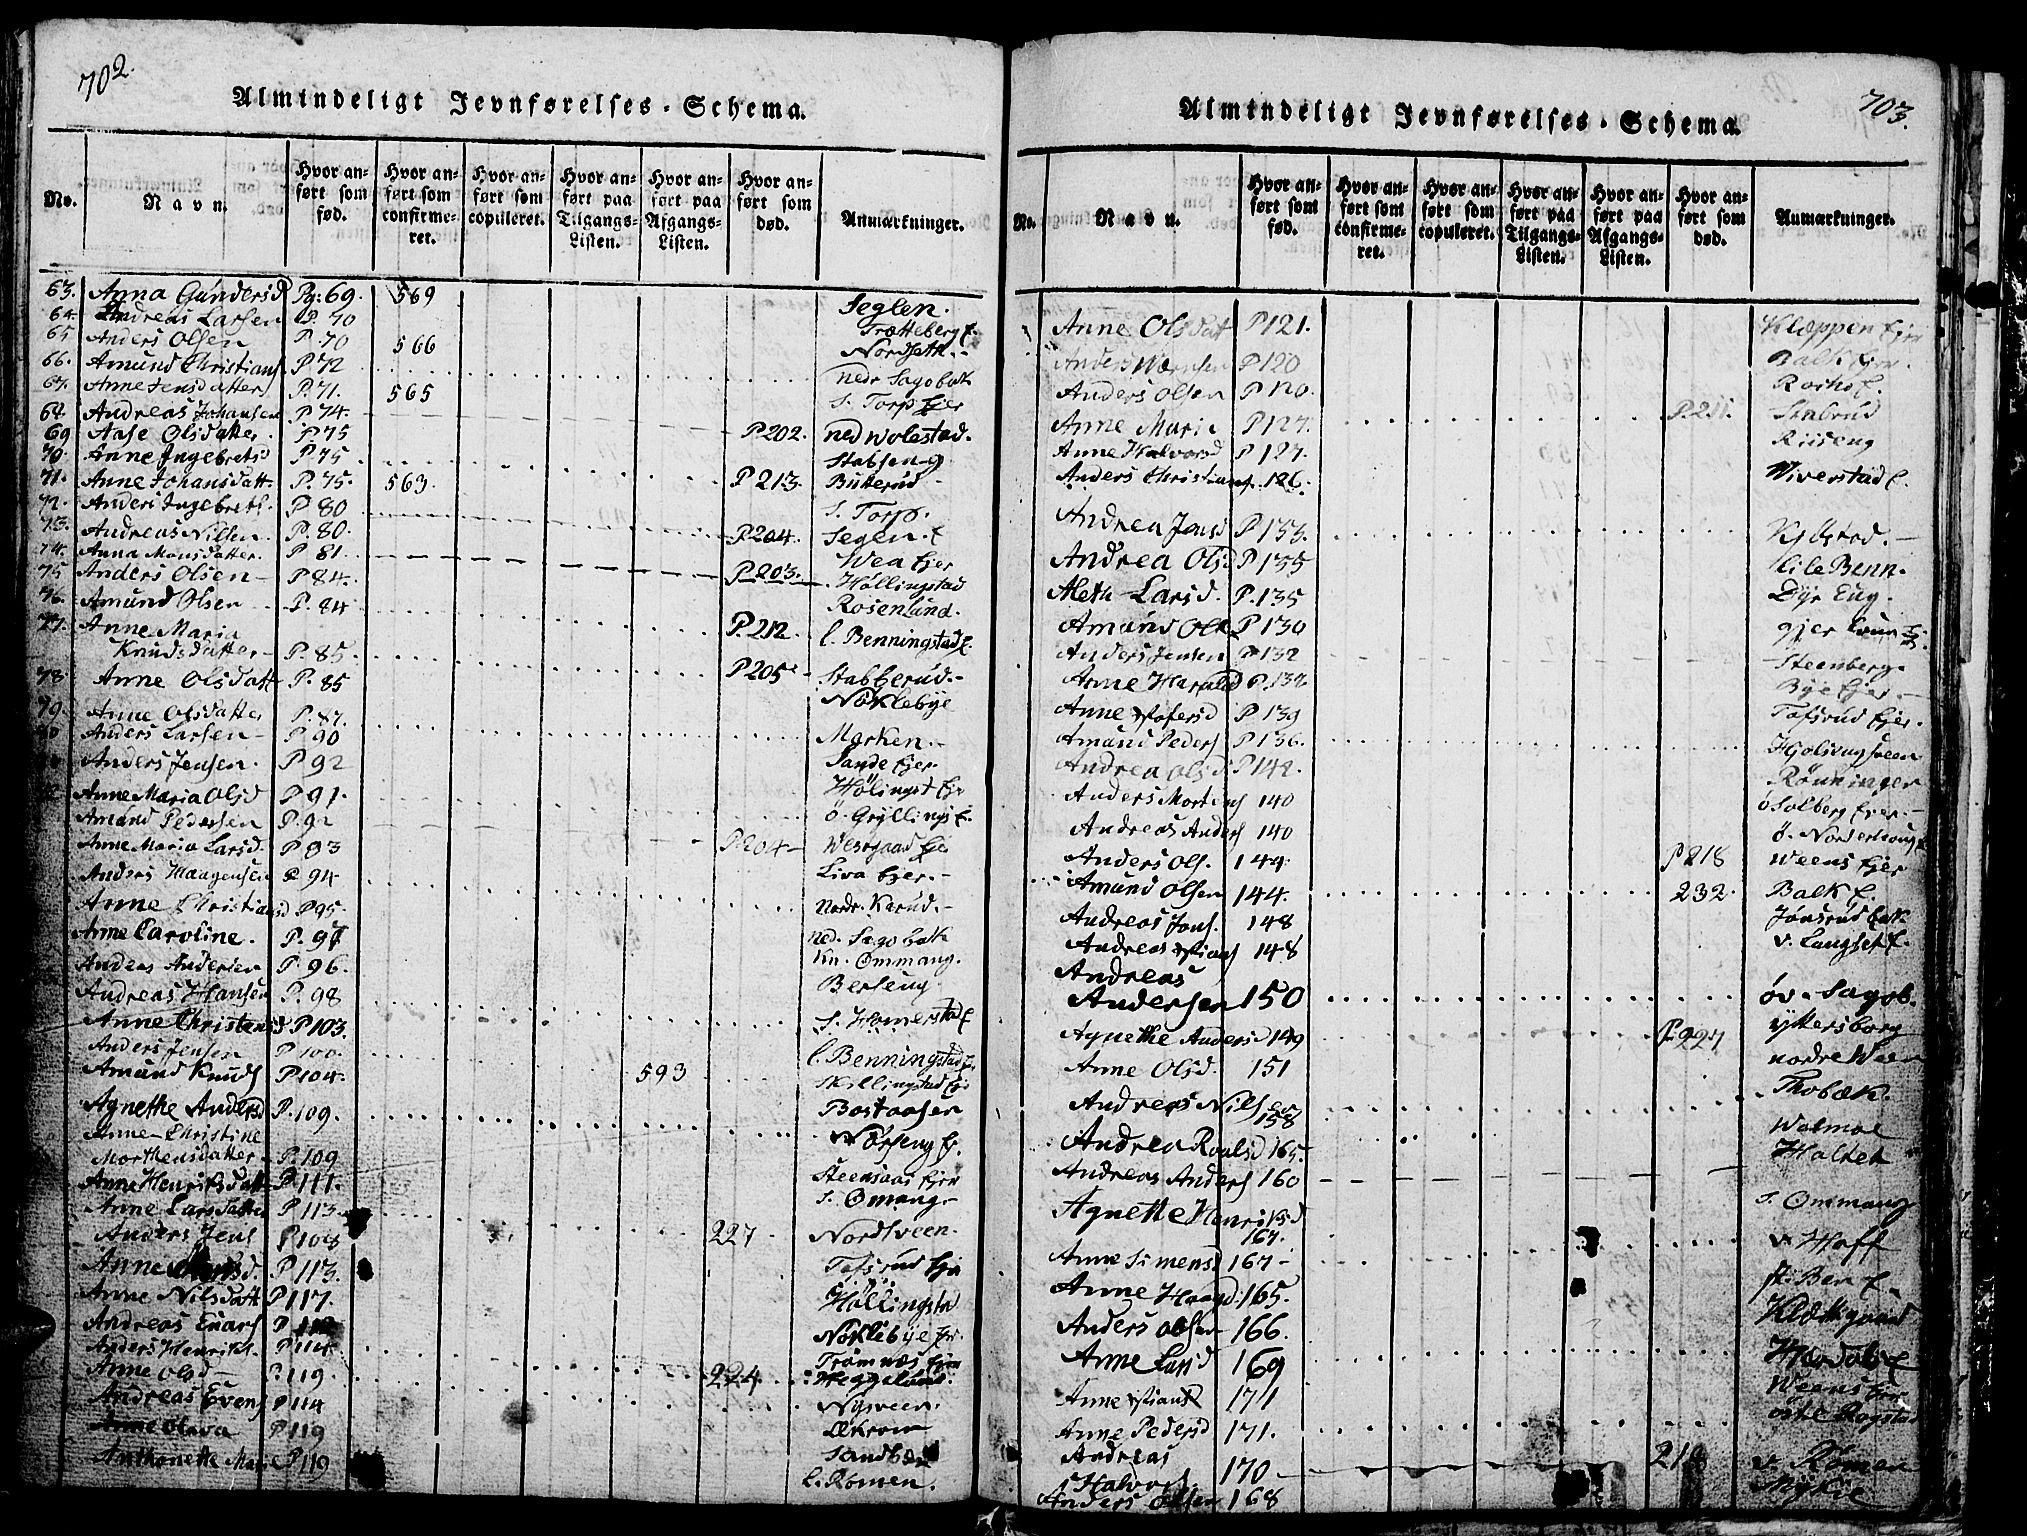 702.
Almindeligt Jevnførelses-Schema.
No.
Navn.
Hvor anført som fød.
Hvor anført som confirmeret.
Hvor anført som copuleret.
Hvor anført paa Tilgangs-Listen.
Hvor anført paa Afgangs-Listen.
Hvor anført som død.
Anmærkninger.
63. Anna Gundersd Pg: 69. 569 Seglen.
64. Andreas Larsen P. 70 Trætteberg E.
65 Anders Olsen P. 70 566 Nordseth
66. Amund Christians P 72 nedr Sagobak
67. Anne Jensdatter P. 71. 565 S. Torp Ejer
68 Andreas Johansen P 74 P 202. ned Wolestad.
69 Aase Olsdatter P 75 Stabseng
70. Anne Ingebretsd P 75 P 213. Butterud
71. Anne Johansdatt. P. 75. 563. S. Torp.
72. Anders Ingebrets. P 80 P 204. Segen. E
73. Andreas Nilsen. P. 80. Wea Ejer
74. Anna Monsdatter. P 81. P 203. Höllingstad
75 Anders Olsen P 84. Rosenlund.
76. Amund Olsen P. 84 P. 212. l. Benningstad E.
77. Anne Maria
Knudsdatter P. 85. P 205 Stabberud.
78. Anne Olsdatt P. 85 Nöklebye
79. Anne Olsdatter P. 87.
Anders Larsen P 90 Marken.
Anders Jensen. P 92 Sande Ejer
Anne Maria Olsd P 91. Hölingst Ejr
Amund Pedersen P. 92 ö. Gryllings E.
Anne Maria Larsd. P 93 P 204 Westgaard Eje
Anders Haagensen P 94 Liva Ejer.
Anne Christiansd P 95. Nordr. Karud.
Anne Caroline. P. 97 ned. Sagobak
Andres Andersen P. 96. Kn. Ommang.
Andreas Hansen P. 98 Berseng
Anne Christensd P 103. S. Homerstad E
Anders Jensen P 100. l. Benningstad E.
Amund Knuds P 104. 593 Skillingstad Ejr
Agnethe Andersd P. 109. Bostaasen
Anne Christine
Morthensdatter P. 109 Nörseng E.
Anne Henriksdatt P 111. Steensaas Ejer
Anne Larsdatter P 113. S. Omang
Anders Jens P 108 227 Nordsveen.
Anne P. 113. Tofsrud Eje
Anne Nilsdatt P 117. Höllingsta
Andreas Enars P Nöklebye Ejr.
Anders Henriks. P 114 Trömnæs Ejer
Anne Olsd P. 119. 224 Heggelund.
Andreas Evens P 114 Nysveen.
Anne Olava P 119 Ökrom
Anthonette Mari P 119 Sandbæ
l. Römen.
703.
Almindeligt Jevnførelses-Schema.
No.
Navn.
Hvor anført som fød.
Hvor anført som confirmeret.
Hvor anført som copuleret.
Hvor anført paa Tilgangs-Listen.
Hvor anført paa Afgangs-Listen.
Hvor anført som død.
Anmærkninger.
Anne Olsdatt P 121. Klæppen Ejer
Anders P 120 Balk Ejer.
Anders Olsen P 120. Roeho E.
Anne Marie P 127. P 211. Stabrud
Anne Halvorsd P 127. Riiseng
Anders Christians. 126. Wiverstad E.
Andrea Jensd P 133. Kylstad.
Andrea Olsd P 135 Lile Benn.
Aleth Larsd. P. 135 Dyr Eng.
Amund Ols P 130
Anders Jensen P 132 Steenberg
Anne Haraldsd P. 138. Bye Ejer.
Anne Xstofersd P 139 Tofsrud Ejer.
Amund Peders P 136. Hjolsengsveen
Andrea Olsd P 142. Rönninger
Anders Mortens 140 ö Solberg Ejer.
Andreas Anders 140 ö. Norderhoug E
Anders Ols. 144 P 218 Weens Ejer
Amund Olsen 144. 232. Balk E.
Andreas Jons. 148 Jönsrud Bak
Andreas Xstians 148 v. Langset E.
Andreas
Andersen 150 öv. Sagob.
Agnethe Andersd 149 P. 227 yttersborg
Anne Olsd. 151 nordre Ween
Andreas Nilsen
158 Thobæk.
Andrea Roalsd 165. Wolmoe
Andreas Anders 160 Holtet
Agnette Henriksd
167. S. Ommang
Anne Simensd 167 v Hoff
Anne Haagd. 165. sk. Ben E.
Anders Olsen 166. Klækgaard
Anne Larsd 169
Anne Xstiansd 171 Weens Ejer
Anne Pedersd 171. oste Rogstad
Andreas
Halvors. 170 v Römen
Anders Olsen 168